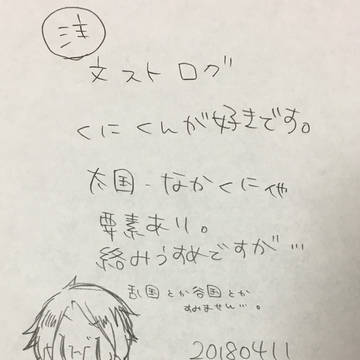 注
文ストログ
くにくんが好きです。
太国・なかくにや
要素あり。
絡みうすめですが…
乱国とか谷国とか
すみません…。
20180411